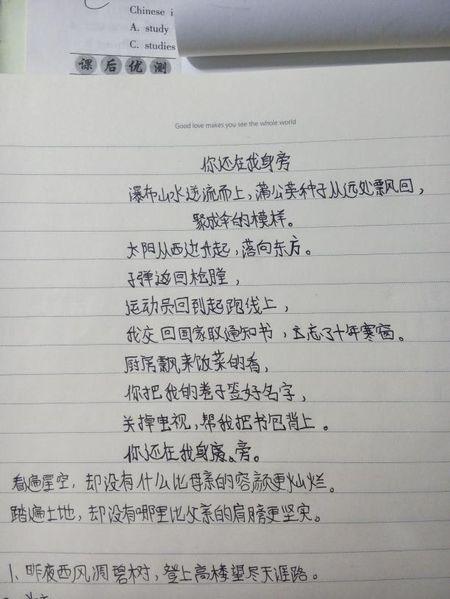 Chinese i
A. study
C. studies
课后优测
Good love makes you see the whole world
你还在我身旁
瀑布山水逆流而上,蒲公英种子从远处飘回,
聚成伞的模样。
太阳从西边升起,落向东方。
子弹返回枪膛,
运动员回到起跑线上,
我交回国家取通知书,忘了十年寒窗。
厨房飘来饭菜的香,
你把我的卷子签好名字,
关掉电视,帮我把书包背上。
你还在我身旁。
看遍星空,却没有什么比母亲的容颜更灿烂。
踏遍土地,却没有哪里比父亲的肩膀更坚实。
1、昨夜西风凋碧树,登上高楼望尽天涯路。